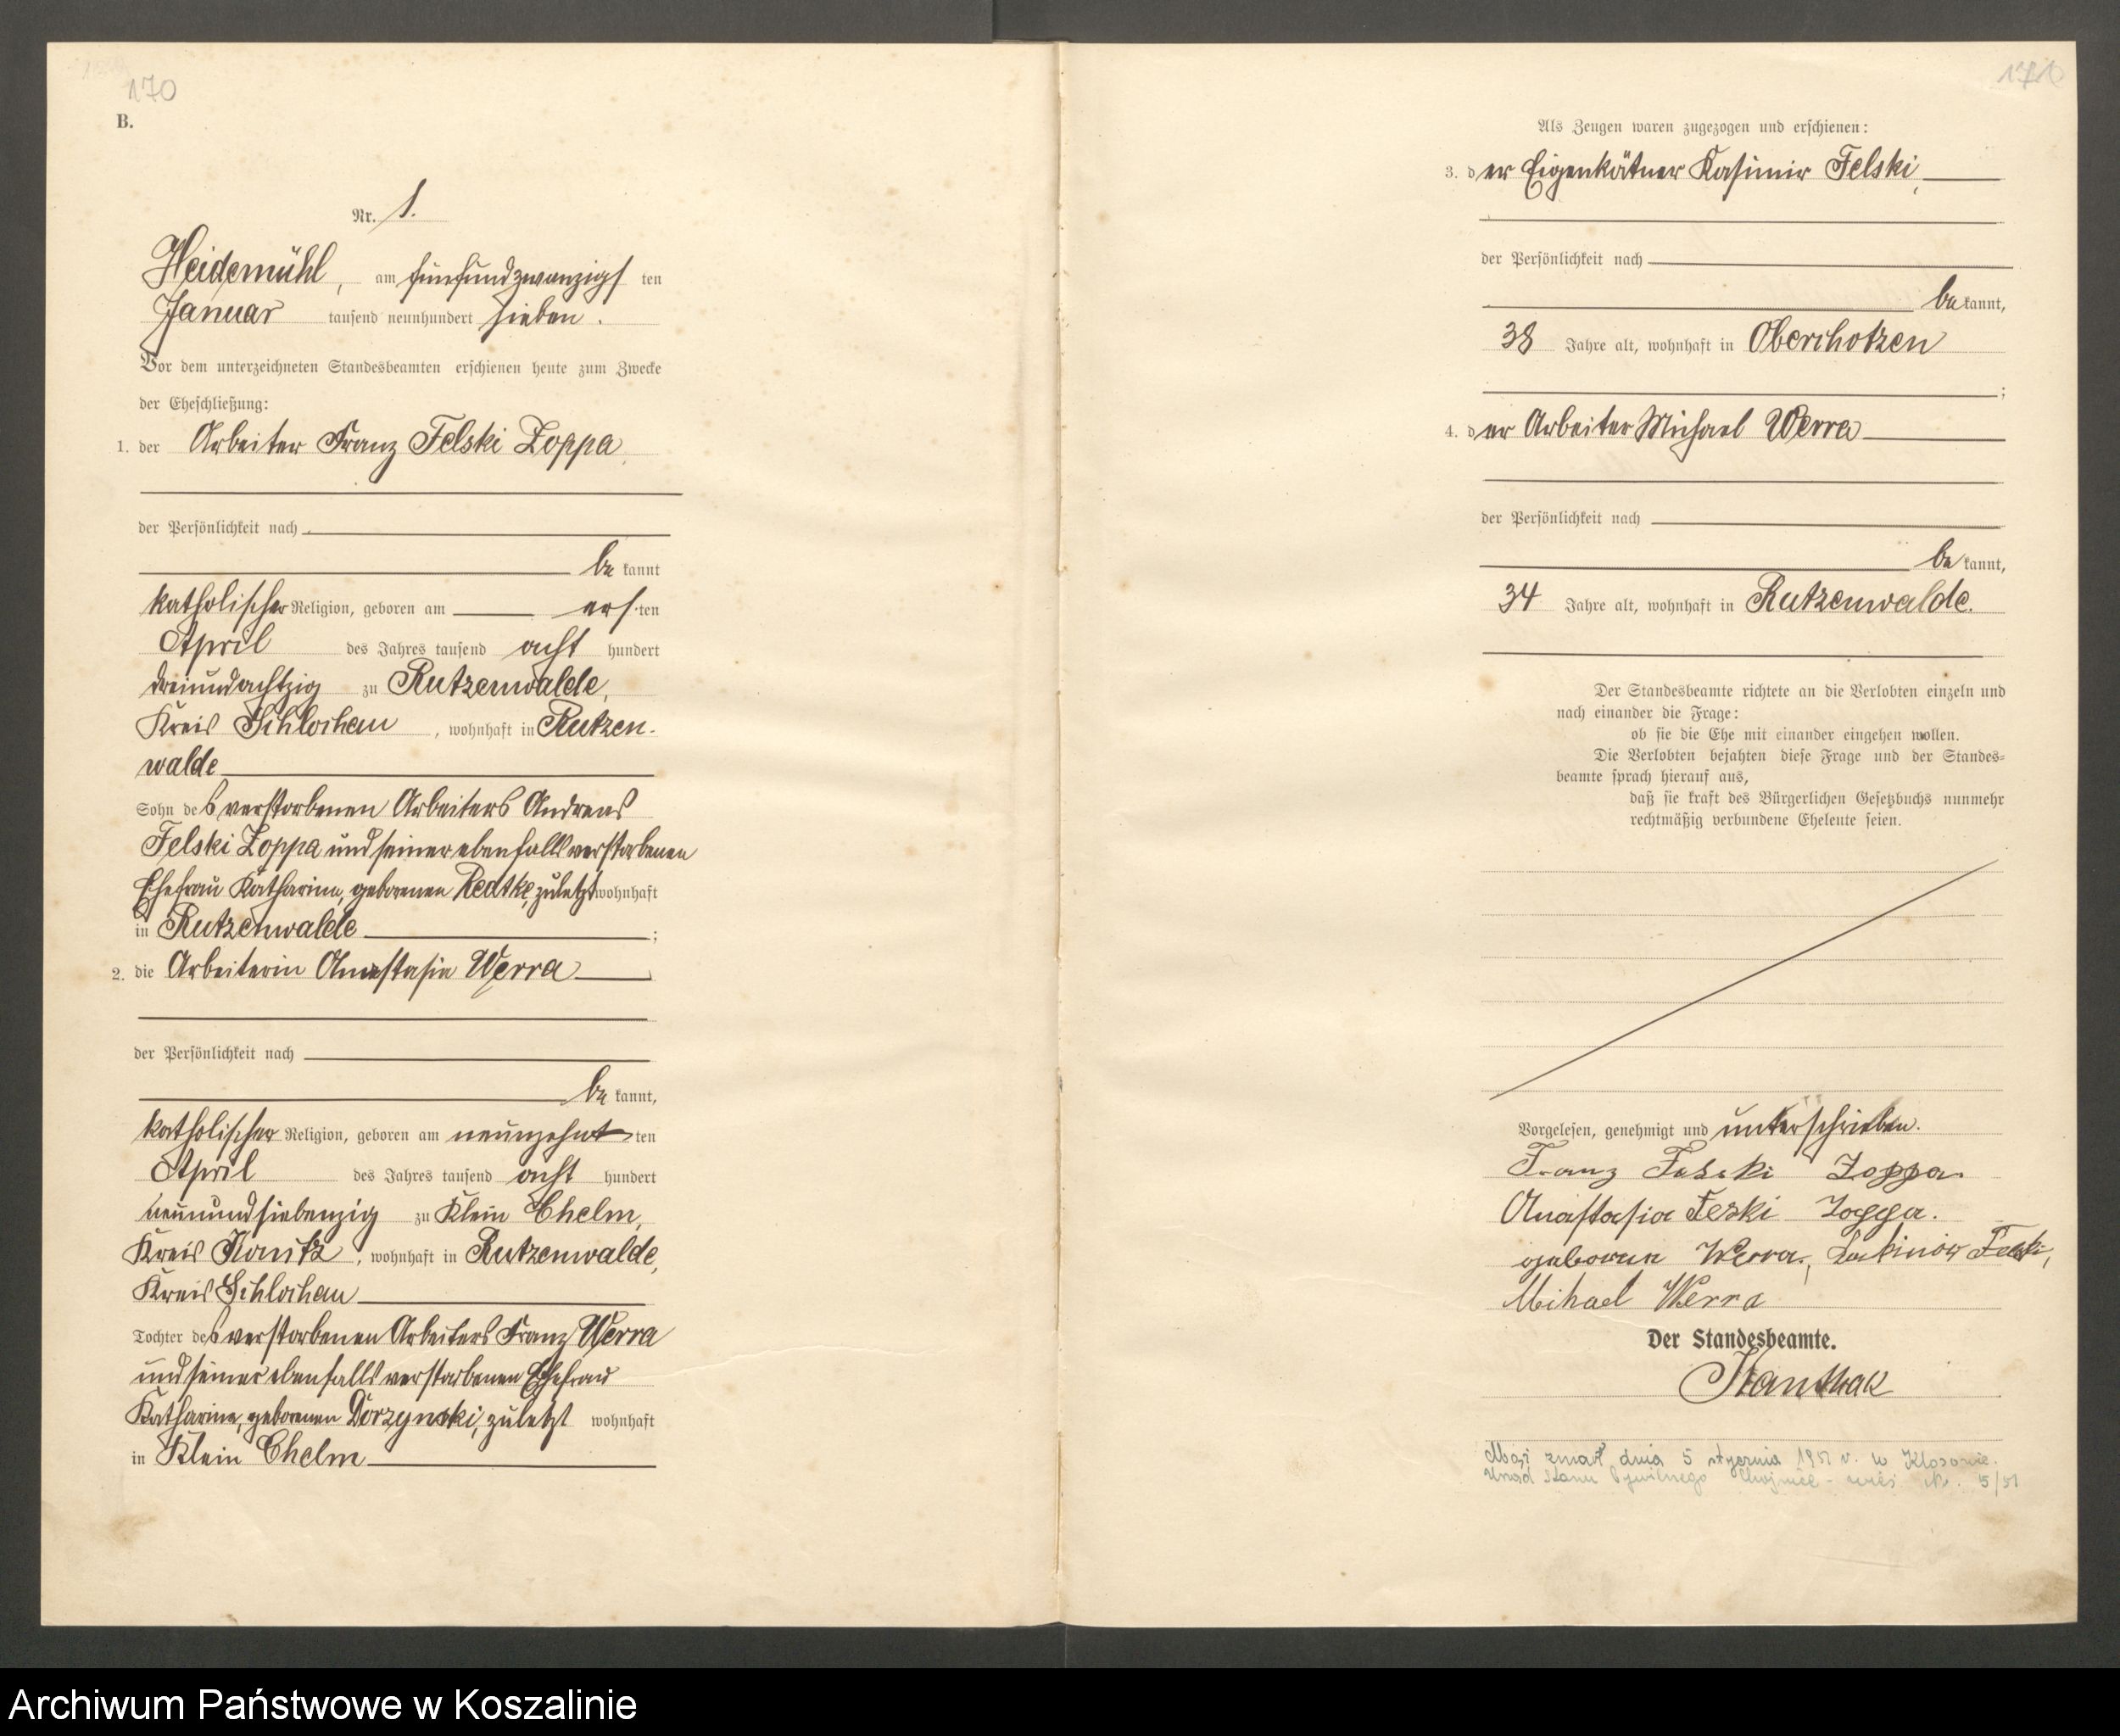 170
B.
Nr. 1.
Heidemühl, am fünfundzwanzigsten
Januar tausend neunhundert sieben.
Vor dem unterzeichneten Standesbeamten erschienen heute zum Zwecke
der Eheschließung:
1. der Arbeiter Franz Felski Zoppa,
der Persönlichkeit nach
bekannt
katholischer Religion, geboren am ersten
April des Jahres tausend acht hundert
dreiundachtzig zu Rutzenwalde,
Kreis Schlochau, wohnhaft in Rutzen-
walde
Sohn des verstorbenen Arbeiters Andreas
Felski Zoppa und seiner ebenfalls verstorbenen
Ehefrau Katharina, geborenen Redtke, zuletzt wohnhaft
in Rutzenwalde;
2. die Arbeiterin Anastasia Werra
der Persönlichkeit nach
bekannt,
katholischer Religion, geboren am neunzehnten
April des Jahres tausend acht hundert
neunundsiebenzig zu Klein Chelm,
Kreis Konitz, wohnhaft in Rutzenwalde,
Kreis Schlochau
Tochter des verstorbenen Arbeiters Franz Werra
und seiner ebenfalls verstorbenen Ehefrau
Katharina, geborenen Dorzynski, zuletzt wohnhaft
in Klein Chelm
Als Zeugen waren zugezogen und erschienen:
3. der Eigenkätner Kasimir Felski,
der Persönlichkeit nach
bekannt,
38 Jahre alt, wohnhaft in Oberchotzen
;
4. der Arbeiter Michael Werra
der Persönlichkeit nach
bekannt,
34 Jahre alt, wohnhaft in Rutzenwalde.
Der Standesbeamte richtete an die Verlobten einzeln und
nach einander die Frage:
ob sie die Ehe mit einander eingehen wollen.
Die Verlobten bejahten diese Frage und der Standes=
beamte sprach hierauf aus,
daß sie kraft des Bürgerlichen Gesetzbuchs nunmehr
rechtmäßig verbundene Eheleute seien.
Vorgelesen, genehmigt und unterschrieben.
Franz Felski Zoppa.
Anastasia Feski Zoppa.
geborene Werra, Felski,
Mihael Werra
Der Standesbeamte.
Mąż zmarł dnia 5 stycznia 1951 r. w Kłosowie.
Urząd Stanu Cywilnego Chojnice - wieś Nr. 5/51
Archiwum Państwowe w Koszalinie